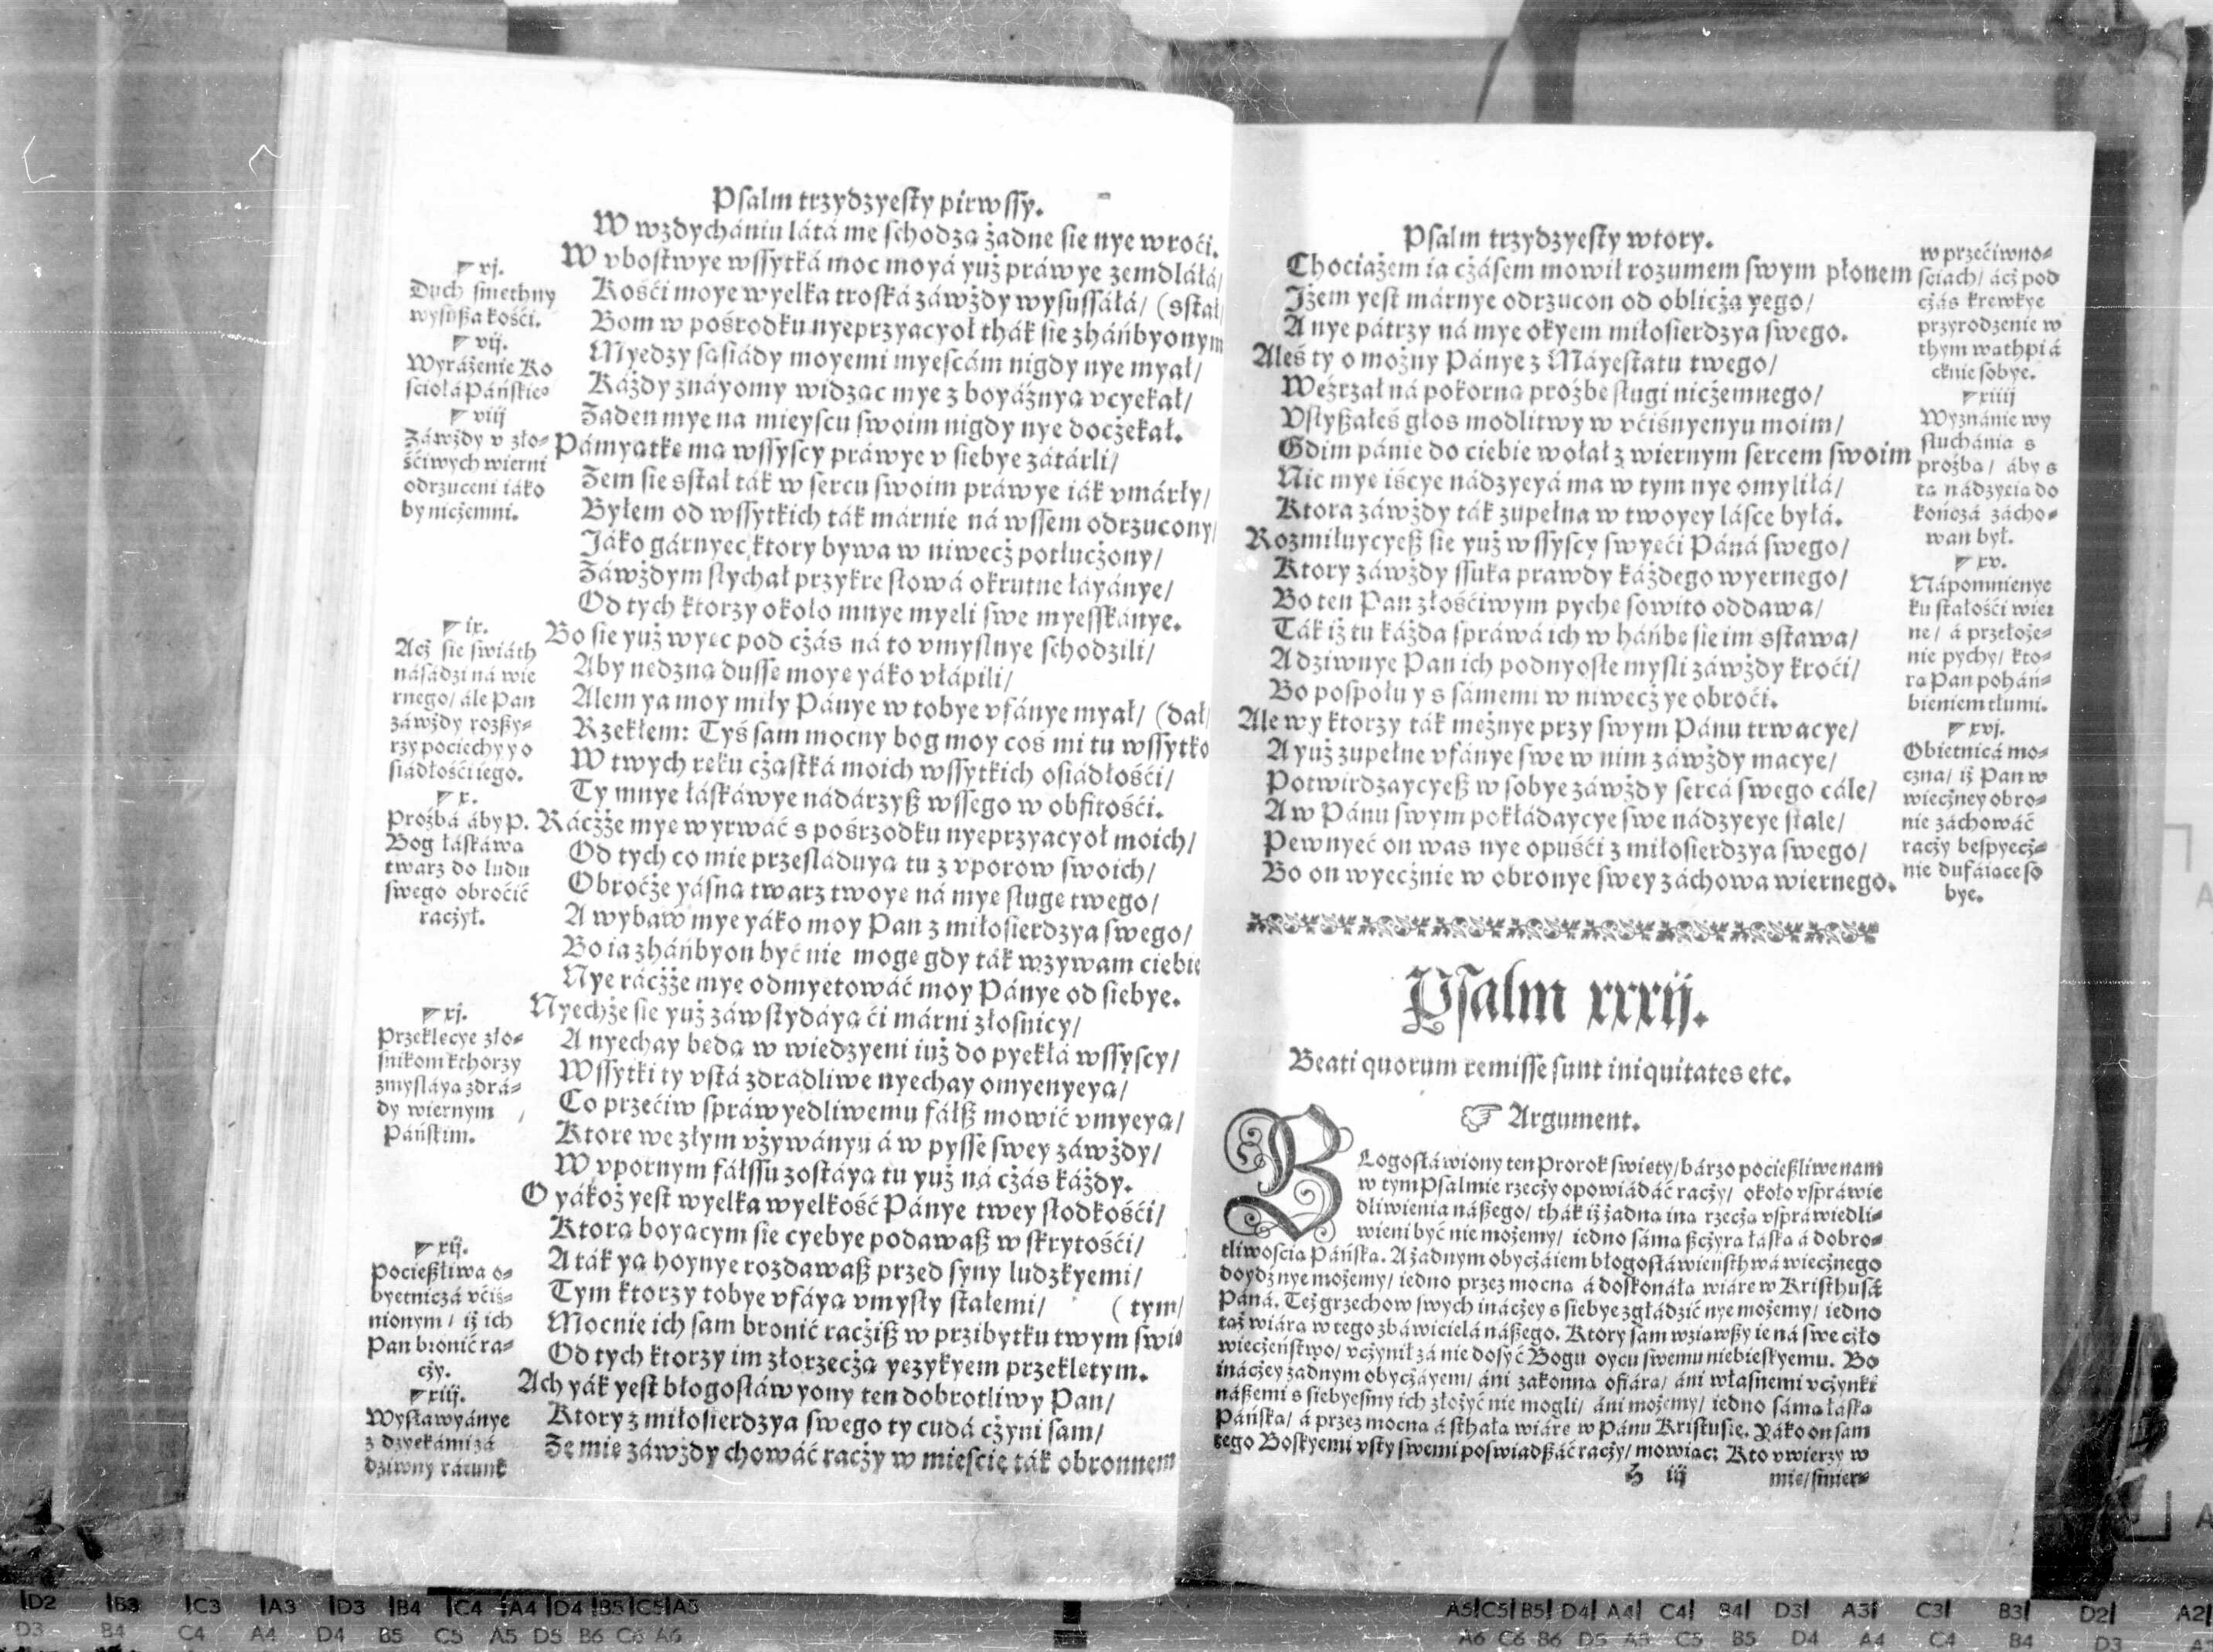 Psalm trzydzyesty pirwssy.
W wzdychániu látá me schodzą żadne sie nye wroći.
W vbostwye wssytká moc moyá yuż práwye zemdláłá/
Kośći moye wyelka troská záwżdy wysussáłá/ (sstał/
Bom w pośrodku nyeprzyacyoł thák sie zháńbyonym
Myedzy sąsiády moyemi myescám nigdy nye myał/
Káżdy znáyomy widząc mye z boyáźnyą vcyekał/
Żaden mye na mieyscu swoim nigdy nye docżekał.
Pámyatkę mą wssyscy práwye v siebye zátárli/
Żem sie sstał ták w sercu swoim práwye iák vmárły/
Byłem od wssytkich ták márnie ná wssem odrzucony/
Jáko gárnyec ktory bywa w niwecż potłucżony/
Záwżdym słychał przykre słowá okrutne łáyánye/
Od tych ktorzy około mnye myeli swe myesskánye.
Bo sie yuż wyęc pod cżás ná to vmyslnye schodzili/
Aby nędzną dussę moyę yáko vłápili/
Alem ya moy miły Pánye w tobye vfánye myał/ (dał/
Rzekłem: Tyś sam mocny bog moy coś mi tu wssytko
W twych ręku cżąstká moich wssytkich osiádłośći/
Ty mnye łáskáwye nádárzyß wssego w obfitośći.
Rácżże mye wyrwáć s pośrzodku nyeprzyacyoł moich/
Od tych co mie przesláduyą tu z vporow swoich/
Obroćże yásną twarz twoyę ná mye sługę twego/
A wybaw mye yáko moy Pan z miłosierdzya swego/
Bo ia zháńbyon być nie mogę gdy ták wzywam ciebie
Nye rácżże mye odmyetowáć moy Pánye od siebye.
Nyechże sie yuż záwstydáyą ći márni złosnicy/
A nyechay będą w wiedzyeni iuż do pyekłá wssyscy/
Wssytki ty vstá zdradliwe nyechay omyenyeyą/
Co przećiw spráwyedliwemu fáłß mowić vmyeyą/
Ktore we złym vżywányu á w pysse swey záwżdy/
W vpornym fáłssu zostáyą tu yuż ná cżás káżdy.
O yákoż yest wyelka wyelkość Pánye twey słodkośći/
Ktorą boyącym sie cyebye podawaß w skrytośći/
A ták yą hoynye rozdawaß przed syny ludzkyemi/
Tym ktorzy tobye vfáyą vmysły stałemi/ (tym/
Mocnie ich sam bronić racżiß w przibytku twym świę
Od tych ktorzy im złorzecżą yęzykyem przeklętym.
Ach yák yest błogosłáwyony ten dobrotliwy Pan/
Ktory z miłosierdzya swego ty cudá cżyni sam/
Że mie záwżdy chowáć racży w miescie ták obronnem
vj.
Duch smethny
wysußa kośći.
vij.
Wyráżenie Ko
sciołá Páńskieº
viij
Záwżdy v zło-
śćiwych wierni
odrzuceni iáko
by nicżemni.
ix.
Acż sie swiáth
násádzi ná wie
rnego/ ále Pan
záwżdy rozßy-
rzy pociechy y o
siádłośći iego.
x.
Proźbá áby P.
Bog łáskáwą
twarz do ludu
swego obroćić
racżył.
xj.
Przeklęcye zło-
śnikom kthorzy
zmysláyą zdrá-
dy wiernym
Páńskim.
xij.
Pocießliwa o-
byetniczá vćiś-
nionym/ iż ich
Pan bronić ra-
cży.
xiij.
Wysławyánye
z dzyekámi zá
dziwny rátunk
Psalm trzydzyesty wtory.
Chociażem ia cżásem mowił rozumem swym płonem
Jżem yest márnye odrzucon od oblicża yego/
A nye pátrzy ná mye okyem miłosierdzya swego.
Aleś ty o możny Pánye z Máyestatu twego/
Weźrzał ná pokorną proźbę sługi nicżemnego/
Vsłyßałeś głos modlitwy w vćiśnyenyu moim/
Gdim pánie do ciebie wołał z wiernym sercem swoim
Nic mye iśćye nádzyeyá ma w tym nye omyliłá/
Ktora záwżdy ták zupełna w twoyey łásce byłá.
Rozmiłuycyeß sie yuż wssyscy swyęći Páná swego/
Ktory záwżdy ssuka prawdy káżdego wyernego/
Bo ten Pan złośćiwym pychę sowito oddawa/
Ták iż tu káżda spráwá ich w háńbę sie im sstawa/
A dziwnye Pan ich podnyosłe mysli záwżdy kroći/
Bo pospołu y s sámemi w niwecż ye obroći.
Ale wy ktorzy ták mężnye przy swym Pánu trwacye/
A yuż zupełne vfánye swe w nim záwżdy macye/
Potwirdzaycyeß w sobye záwżdy sercá swego cále/
A w Pánu swym pokłádaycye swe nádzyeye stale/
Pewnyeć on was nye opuśći z miłosierdzya swego/
Bo on wyecżnie w obronye swey záchowa wiernego.
w przećiwno-
sciach/ ácż pod
cżás krewkye
przyrodzenie w
thym wathpi á
cknie sobye.
xiiij
Wyznánie wy
słuchánia s
proźbą/ áby s
tą nádzyeią do
kończá zácho-
wan był.
xv.
Nápomnienye
ku stałośći wier
ne/ á przełoże-
nie pychy/ kto-
rą Pan poháń-
bieniem tłumi.
xvj.
Obietnicá mo-
czna/ iż Pan w
wiecżney obro-
nie záchowáć
racży bespyecż-
nie dufáiące so
bye.
Psalm xxxij.
Beati quorum remisse sunt iniquitates etc.
☞ Argument.
BLogosłáwiony ten Prorok swięty/ bárzo pocießliwe nam
w tym Psalmie rzecży opowiádáć racży/ około vspráwie
dliwienia náßego/ thák iż żadną iną rzecżą vspráwiedli-
wieni być nie możemy/ iedno sámą ßcżyrą łáską á dobro-
tliwoscią Páńską. A żadnym obycżáiem błogosłáwieństhwá wiecżnego
doydź nye możemy/ iedno przez mocną á doskonáłą wiárę w Kristhusá
Páná. Też grzechow swych inácżey s siebye zgłádzić nye możemy/ iedno
táż wiára w tego zbáwicielá náßego. Ktory sam wziawßy ie ná swe cżło
wiecżeństwo/ vcżynił zá nie dosyć Bogu oycu swemu niebieskyemu. Bo
inácżey żadnym obycżáyem/ áni zakonną ofiárą/ áni własnemi vcżynki
náßemi s siebyesmy ich złożyć nie mogli/ áni możemy/ iedno sámą łáską
Páńską/ á przez mocną á sthałą wiárę w Pánu Kristusie. Yáko on sam
tego Boskyemi vsty swemi poswiadßáć racży/ mowiąc: Kto vwierzy w
H iij mie/ smier-